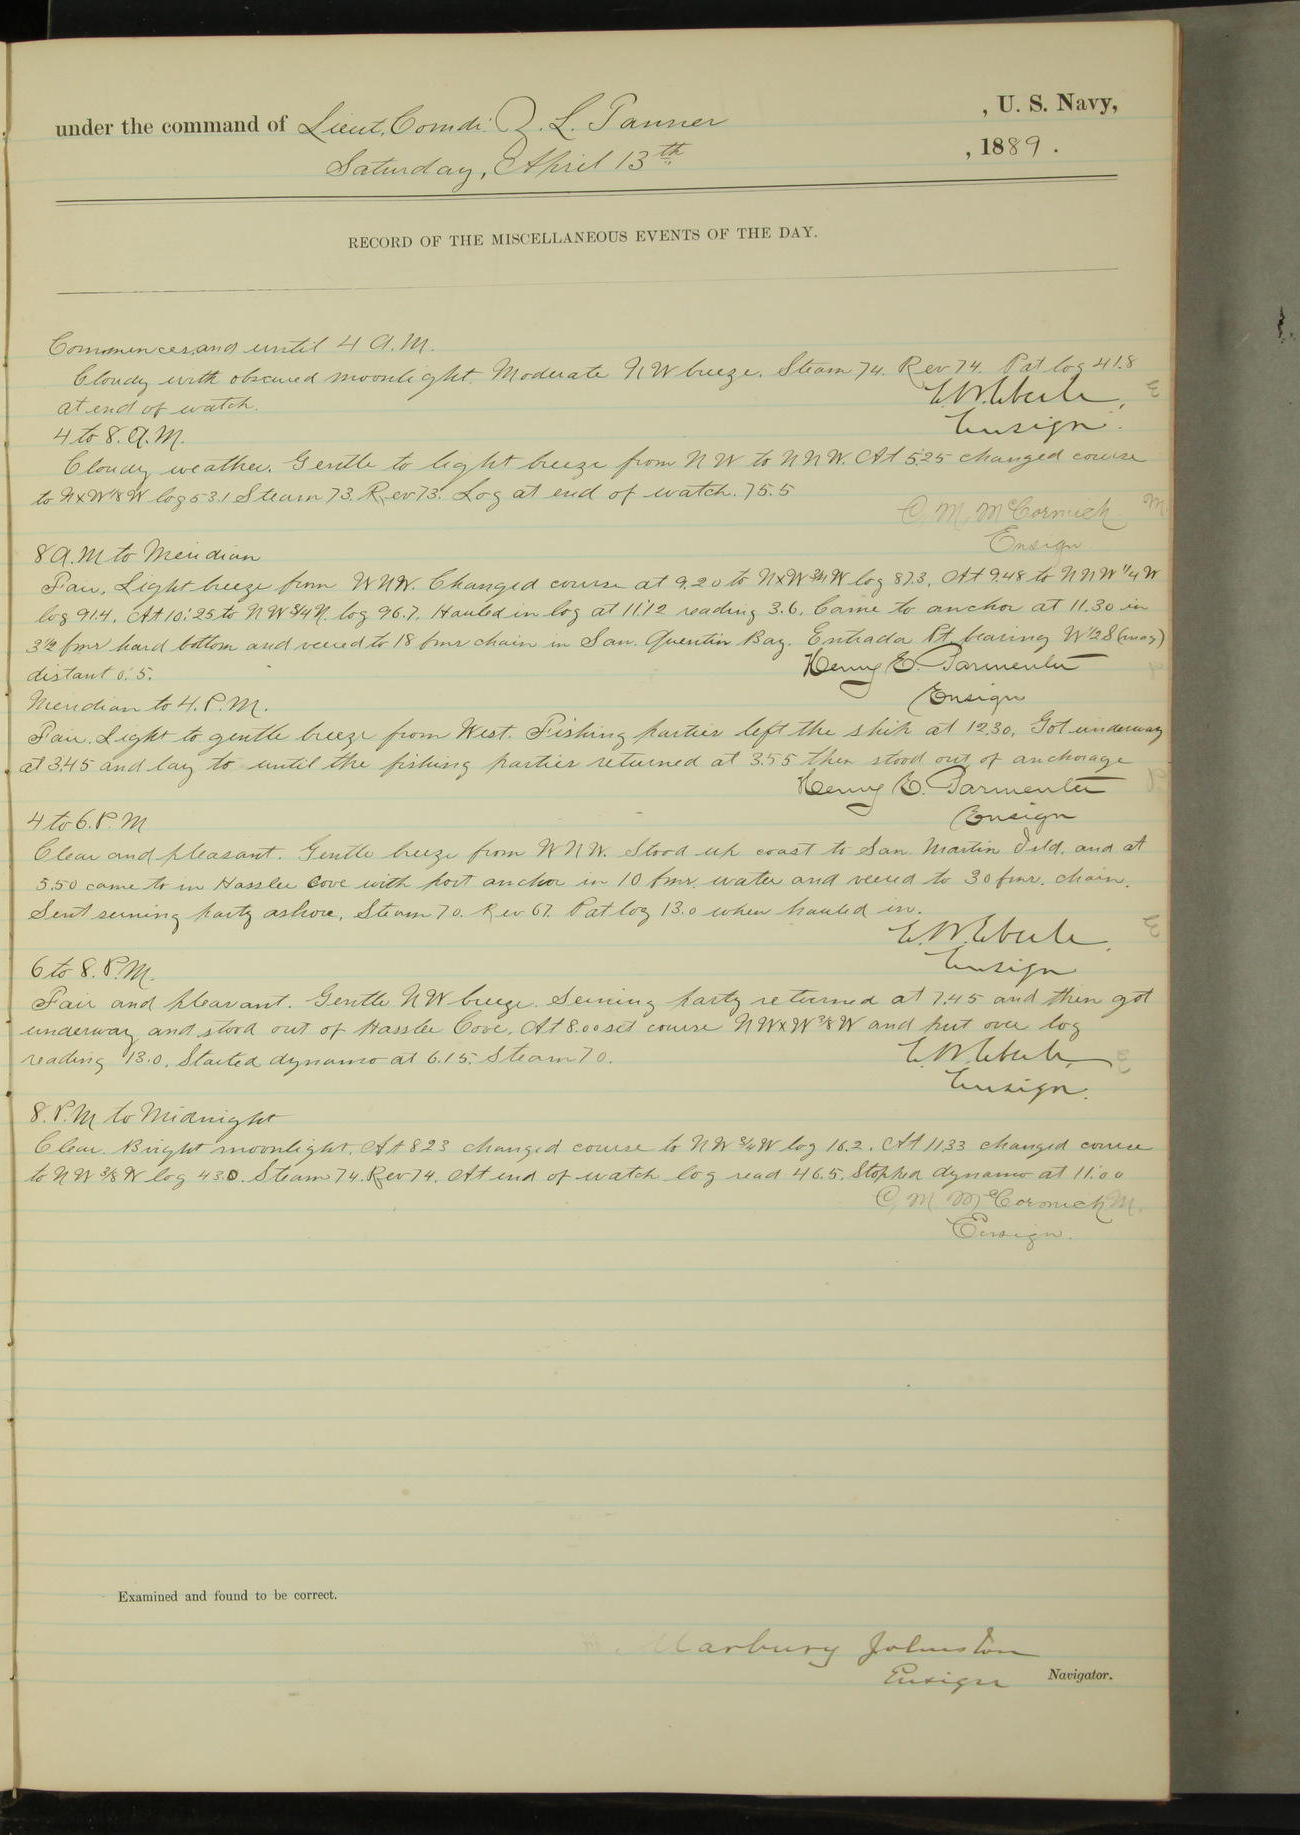 under the command of Lieut. Comdr. Z. L. Tanner , U. S. Navy,
Saturday, April 13th , 1889.
RECORD OF THE MISCELLANEOUS EVENTS OF THE DAY.
Commences and until 4 A.M.
Cloudy with obscured moonlight. Moderate NW breeze. Steam 74. Rev 74. Pat log 41.8
at end of watch.
E.W. Eberle,
Ensign.
4 to 8. A.M.
Cloudy weather. Gentle to light breeze from NW to NNW. At 5.25 changed course
to NxW 1/8 W log 53.1 Steam 73. Rev 73. Log at end of watch. 75.5
C. M. McCormick
Ensign
8 A.M to Meridian
Fair. Light breeze from WNW. Changed course at 9.20 to NxW 3/4 W log 87.3. At 9.48 to NNW 1/4 W
log 91.4. At 10.25 to NW 3/4 N. log 96.7. Hauled in log at 11.12 reading 3.6. Came to anchor at 11.30 in
3 1/2 fms hard bottom and veered to 18 fms chain in San. Quentin Bay. Entrada Pt. bearing W 1/2 S (mag)
distant 0.5.
Henry E. Parmenter
Ensign
Meridian to 4. P.M.
Fair. Light to gentle breeze from West. Fishing parties left the ship at 12.30. Got underway
at 3.45 and lay to until the fishing parties returned at 3.55 then stood out of anchorage
Henry E. Parmenter
Ensign
4 to 6. P.M
Clear and pleasant. Gentle breeze from WNW. Stood up coast to San Martin Isld. and at
5.50 came to in Hassler Cove with port anchor in 10 fms. water and veered to 30 fms. chain.
Sent seining party ashore. Steam 70. Rev 67. Pat log 13.0 when hauled in.
E.W. Eberle,
Ensign
6 to 8. P.M.
Fair and pleasant. Gentle NW breeze. Seining party returned at 7.45 and then got
underway and stood out of Hassler Cove. At 8.00 set course NWxW 3/8 W and put over log
reading 13.0. Started dynamo at 6.15. Steam 70.
E.W. Eberle,
Ensign.
8. P.M to Midnight
Clear. Bright moonlight. At 8.23 changed course to NW 3/4 W log 16.2. At 11.33 changed course
to NW 3/8 W log 43.0. Steam 74. Rev 74. At end of watch log read 46.5. Stopped dynamo at 11.00
C. M McCormick
Ensign.
Examined and found to be correct.
Marbury Johnston
Ensign Navigator.